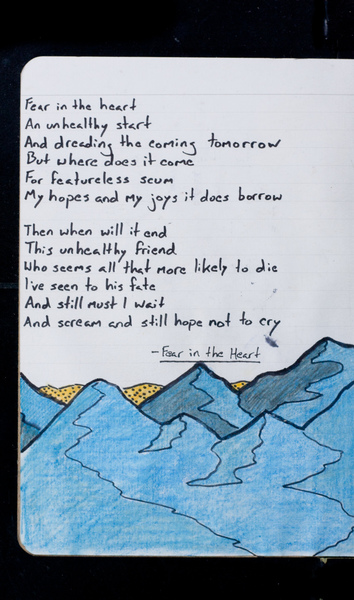 Fear in the heart
An unhealthy start
And dreading the coming tomorrow
But where does it come
For featureless scum
My hopes and my joys it does borrow
Then when will it end
This unhealthy friend
Who seems all that more likely to die
I've seen to his fate
And still must I wait
And scream and still hope not to cry
- Fear in the Heart